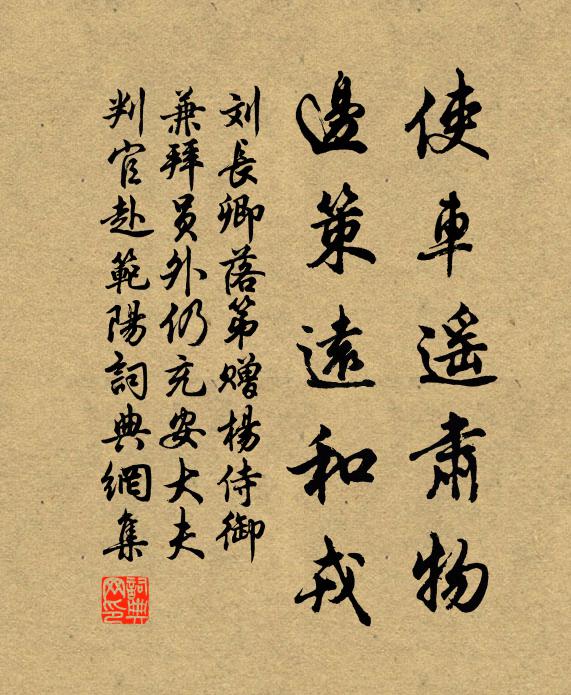 使車遥肅物
邊策遠和戎
刘長卿落第赠楊侍御
兼拜员外仍充安大夫
判官赴範陽詞典網集
詞典網印